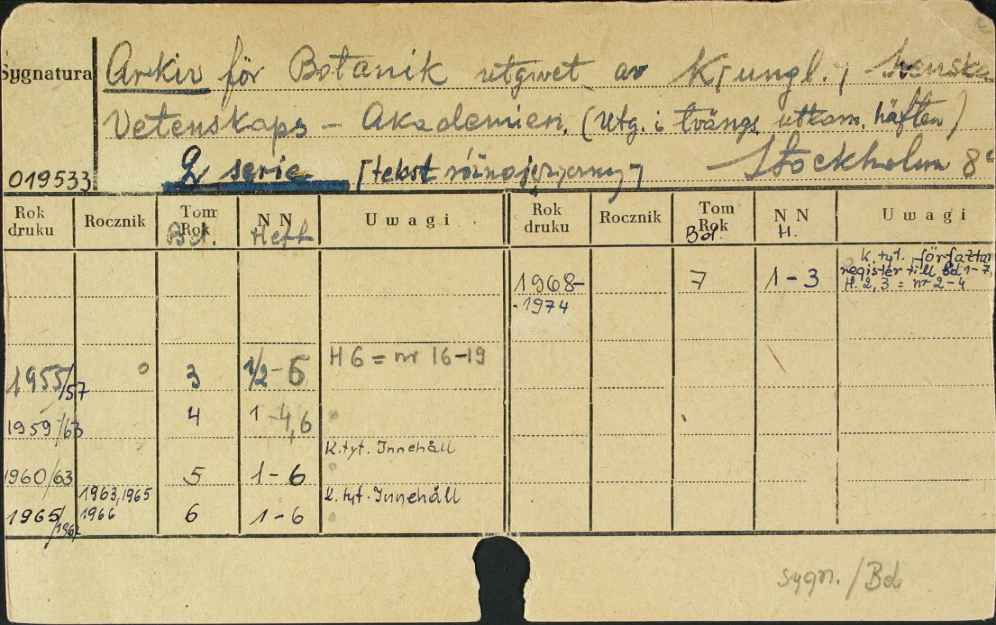 Sygnatura Arkiv för Botanik utgivet av K. jungl. Svenska
Vetenskaps - Akademien. (Utg. i tvängs utkom. häften)
019533 2 serie [tekst różnojęzyczny] Stockholm 8°
Rok druku Rocznik Tom Rok Bd. NN Heft Uwagi Rok druku Rocznik Tom Rok Bd. NN H. Uwagi
1968- -1974 7 1-3 K. tyt. författar register till Bd 1-7, H. 2, 3 = nr 2-4
H 6 = nr 16-19
1955/57 3 1/2-6
1959/63 4 1-4,6
K. tyt. Innehåll
1960/63 5 1-6
K. tyt. Innehåll
1965/ 1963, 1965 1966 6 1-6
sygn. / Bd